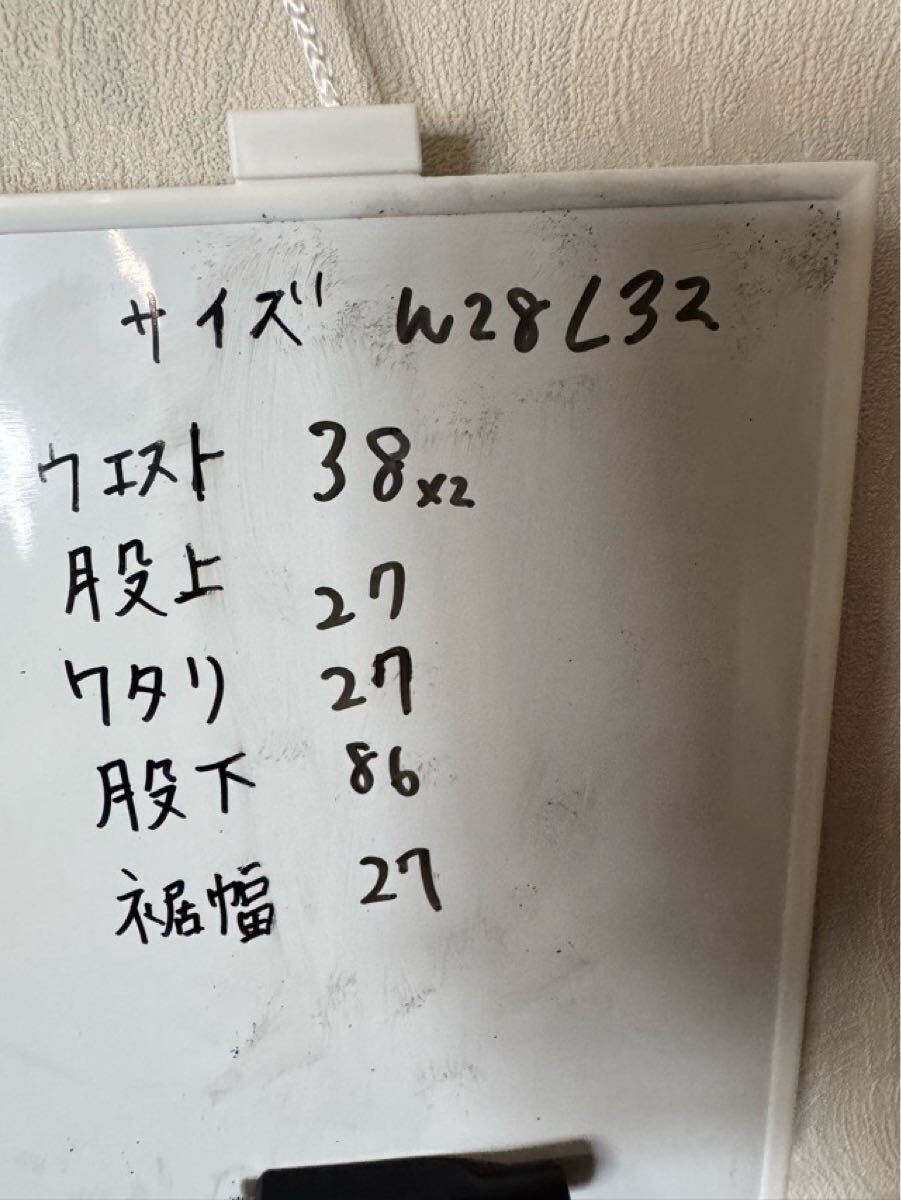 サイズ W28L32
ウエスト 38x2
股上 27
ワタリ 27
股下 86
裾幅 27